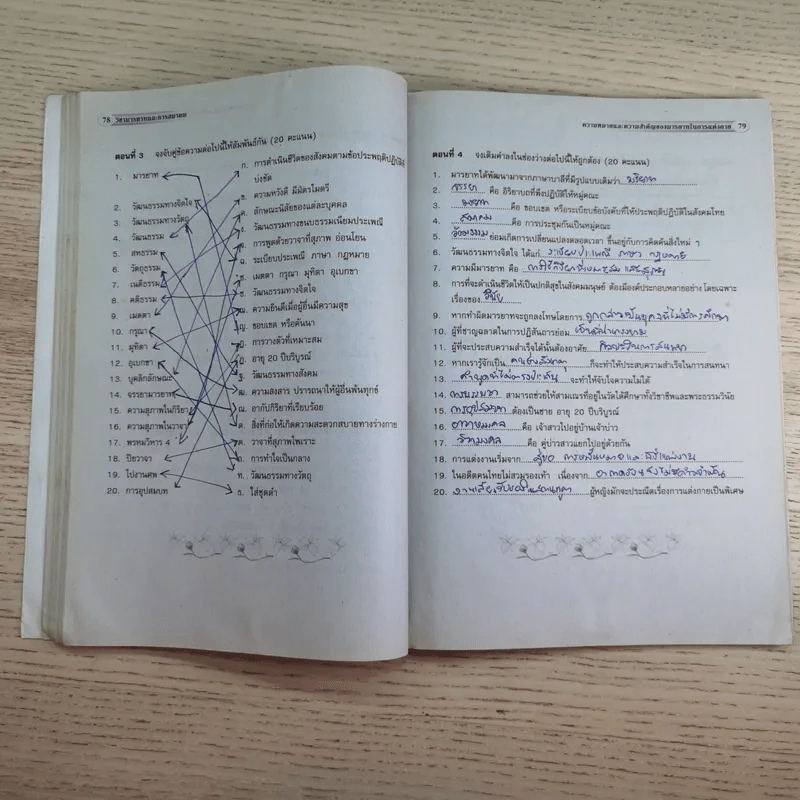 78 วิชามารยาทและการสมาคม
ตอนที่ 3 จงจับคู่ข้อความต่อไปนี้ให้สัมพันธ์กัน (20 คะแนน)
1. มารยาท
2. วัฒนธรรมทางจิตใจ
3. วัฒนธรรมทางวัตถุ
4. วัฒนธรรม
5. สหธรรม
6. วัตถุธรรม
7. เนติธรรม
8. คติธรรม
9. เมตตา
10. กรุณา
11. มุทิตา
12. อุเบกขา
13. บุคลิกลักษณะ
14. จรรยามารยาท
15. ความสุภาพในกิริยา
16. ความสุภาพในวาจา
17. พรหมวิหาร 4
18. ปิยวาจา
19. ไปงานศพ
20. การอุปสมบท
ก. การดำเนินชีวิตของสังคมตามข้อประพฤติปฏิบัติ
บ่งชัด
ข. ความหวังดี มีมิตรไมตรี
ค. ลักษณะนิสัยของแต่ละบุคคล
ง. วัฒนธรรมทางขนบธรรมเนียมประเพณี
จ. การพูดด้วยวาจาที่สุภาพ อ่อนโยน
ฉ. ระเบียบประเพณี ภาษา กฎหมาย
ช. เมตตา กรุณา มุทิตา อุเบกขา
ซ. วัฒนธรรมทางจิตใจ
ฌ. ความยินดีเมื่อผู้อื่นมีความสุข
ญ. ขอบเขต หรือคันนา
ฎ. การวางตัวที่เหมาะสม
ฏ. อายุ 20 ปีบริบูรณ์
ฐ. วัฒนธรรมทางสังคม
ฑ. ความสงสาร ปรารถนาให้ผู้อื่นพ้นทุกข์
ฒ. อากัปกิริยาที่เรียบร้อย
ณ. สิ่งที่ก่อให้เกิดความสะดวกสบายทางร่างกาย
ด. วาจาที่สุภาพไพเราะ
ต. การทำใจเป็นกลาง
ถ. วัฒนธรรมทางวัตถุ
ธ. ใส่ชุดดำ
ความหมายและความสำคัญของมารยาทในการแต่งกาย 79
ตอนที่ 4 จงเติมคำลงในช่องว่างต่อไปนี้ให้ถูกต้อง (20 คะแนน)
1. มารยาทได้พัฒนามาจากภาษาบาลีที่มีรูปแบบเดิมว่า
2. จรรยา คือ อิริยาบถที่พึงปฏิบัติให้หมู่คณะ
3. มรยาท คือ ขอบเขต หรือระเบียบข้อบังคับที่ให้ประพฤติปฏิบัติในสังคมไทย
4. สมาคม คือ การประชุมกันเป็นหมู่คณะ
5. วัฒนธรรม ย่อมเกิดการเปลี่ยนแปลงตลอดเวลา ขึ้นอยู่กับการคิดค้นสิ่งใหม่ ๆ
6. วัฒนธรรมทางจิตใจ ได้แก่ ระเบียบประเพณี ภาษา กฎหมาย
7. ความมีมารยาท คือ
8. การที่จะดำเนินชีวิตให้เป็นปกติสุขในสังคมมนุษย์ ต้องมีองค์ประกอบหลายอย่าง โดยเฉพาะ
เรื่องของ วินัย
9. หากทำผิดมารยาทจะถูกลงโทษโดยการ
10. ผู้ที่ชาญฉลาดในการปฏิสันถารย่อม
11. ผู้ที่จะประสบความสำเร็จได้นั้นต้องอาศัย ศิลปะในการสนทนา
12. หากเรารู้จักเป็น ก็จะทำให้ประสบความสำเร็จในการสนทนา
13. จะทำให้จับใจความไม่ได้
14. การบรรพชา สามารถช่วยให้สามเณรที่อยู่ในวัดได้ศึกษาทั้งวิชาชีพและพระธรรมวินัย
15. การอุปสมบท ต้องเป็นชาย อายุ 20 ปีบริบูรณ์
16. อาวาหมงคล คือ เจ้าสาวไปอยู่บ้านเจ้าบ่าว
17. วิวาหมงคล คือ คู่บ่าวสาวแยกไปอยู่ด้วยกัน
18. การแต่งงานเริ่มจาก สู่ขอ การหมั้นหมาย และพิธีแต่งงาน
19. ในอดีตคนไทยไม่สวมรองเท้า เนื่องจาก
20. ผู้หญิงมักจะประณีตเรื่องการแต่งกายเป็นพิเศษ